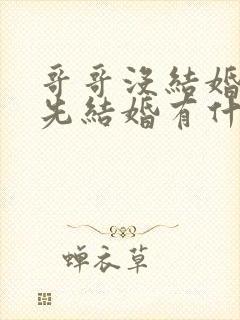 哥哥沒結婚
先結婚有什
蝉衣草